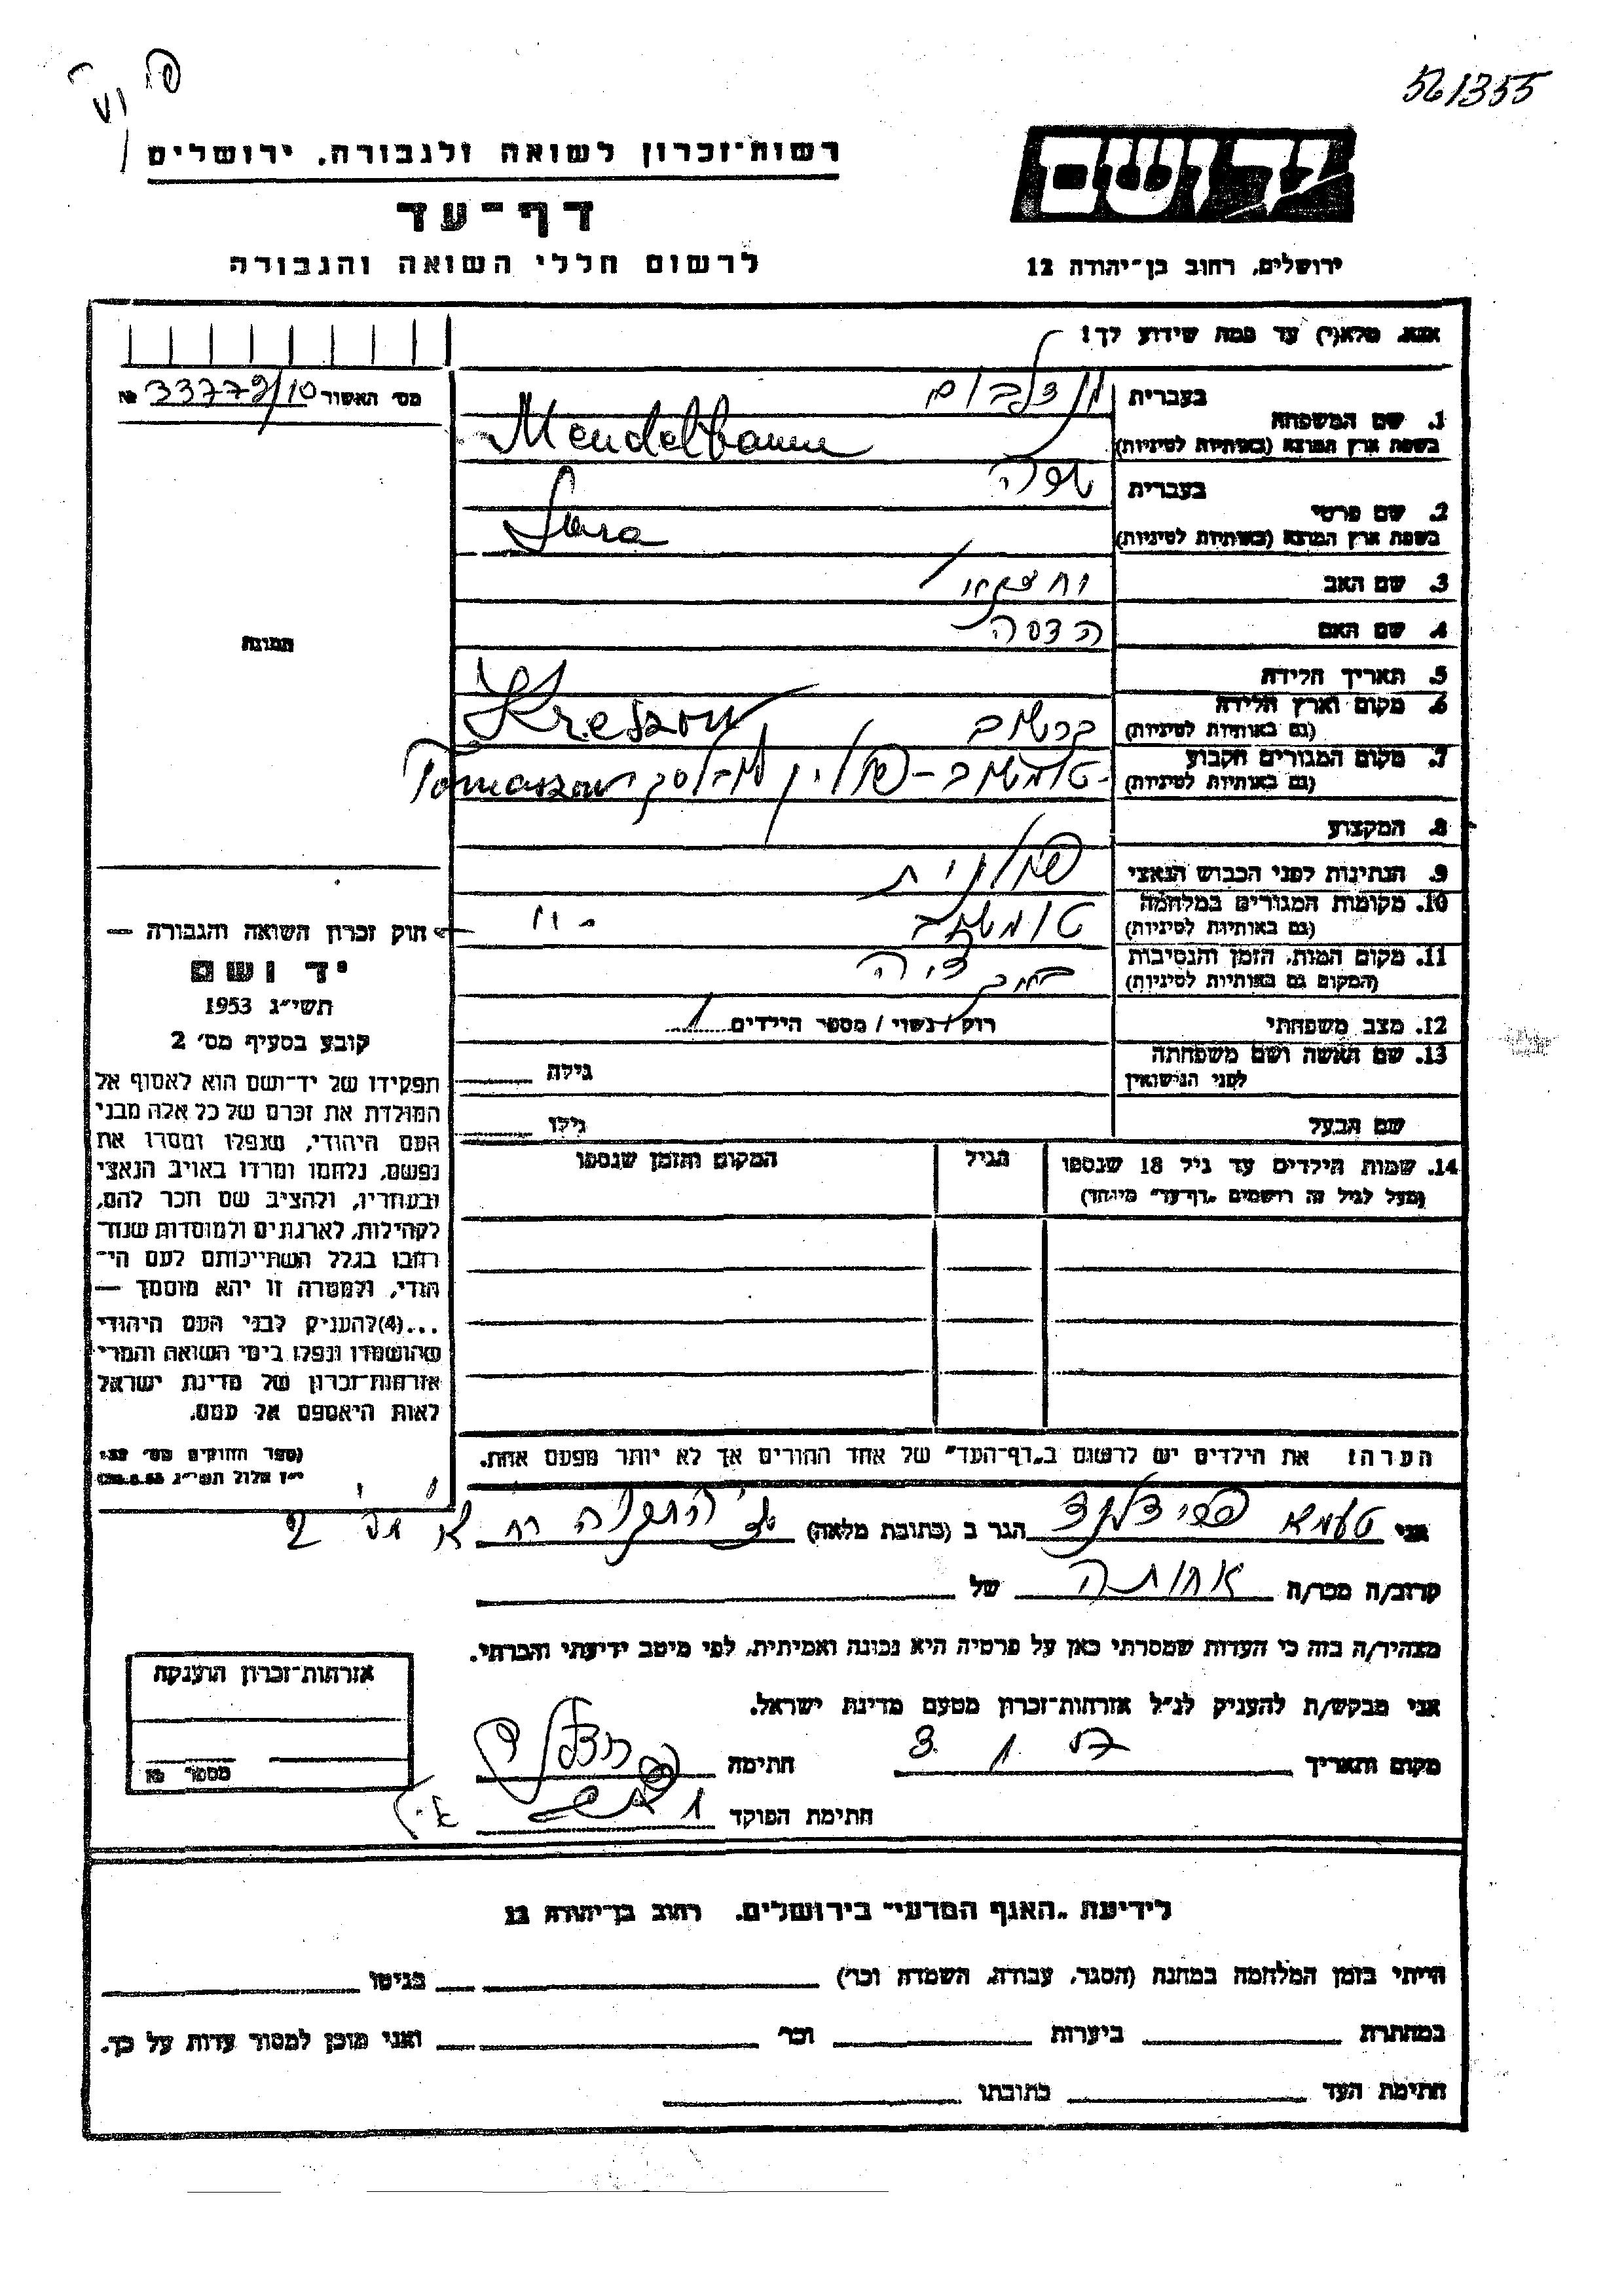 561355
רשות-זכרון לשואה ולגבורה, ירושלים
יד ושם
דף-עד
לרשום חללי השואה והגבורה
ירושלים, רחוב בן-יהודה 12
אנא, מלא(י) עד כמה שידוע לך!
מס' האשור 33779/10 №
1. שם המשפחה בעברית מנדלבוים
בשפת ארץ המוצא (באותיות לטיניות) Mendelbaum
2. שם פרטי בעברית שרה
בשפת ארץ המוצא (באותיות לטיניות) Sura
3. שם האב יחזקאל
4. שם האם הדסה
5. תאריך הלידה
6. מקום וארץ הלידה
(גם באותיות לטיניות) Kreszow
7. מקום המגורים הקבוע
(גם באותיות לטיניות) טומשוב - פולין לובלסקי Tomaszow
8. המקצוע
9. הנתינות לפני הכבוש הנאצי פולנית
10. מקומות המגורים במלחמה
(גם באותיות לטיניות) טומשוב - " -
11. מקום המות, הזמן והנסיבות
(המקום גם באותיות לטיניות)
12. מצב משפחתי רווק / נשוי / מספר הילדים 1
13. שם האשה ושם משפחתה
לפני הנישואין גילה
שם הבעל גילו
14. שמות הילדים עד גיל 18 שנספו הגיל המקום והזמן שנספו
(מעל לגיל זה רושמים "דף-עד" מיוחד)
הערה: את הילדים יש לרשום ב"דף-העד" של אחד ההורים אך לא יותר מפעם אחת.
תמונה
חוק זכרון השואה והגבורה —
יד ושם
תשי"ג 1953
קובע בסעיף מס' 2
תפקידו של יד-ושם הוא לאסוף אל
המולדת את זכרם של כל אלה מבני
העם היהודי, שנפלו ומסרו את
נפשם, נלחמו ומרדו באויב הנאצי
ובעוזריו, ולהציב שם וזכר להם,
לקהילות, לארגונים ולמוסדות שנח-
רבו בגלל השתייכותם לעם הי-
הודי, ולמטרה זו יהא מוסמך —
...(4)להעניק לבני העם היהודי
שהושמדו ונפלו בימי השואה והמרי
אזרחות-זכרון של מדינת ישראל
לאות היאספם אל עמם.
(ספר החוקים מס' 132
י"ז אלול תשי"ג 28.8.53)
אני הגר ב (כתובת מלאה)
קרוב/ה מכר/ה אחותה של
מצהיר/ה בזה כי העדות שמסרתי כאן על פרטיה היא נכונה ואמיתית, לפי מיטב ידיעתי והכרתי.
אני מבקש/ת להעניק לנ"ל אזרחות-זכרון מטעם מדינת ישראל.
מקום ותאריך חתימה
חתימת הפוקד
אזרחות-זכרון הוענקה
מספר №
לידיעת "האגף המדעי" בירושלים, רחוב בן-יהודה 12
הייתי בזמן המלחמה במחנה (הסגר, עבודה, השמדה וכו') בגיטו
במחתרת ביערות וכו' ואני מוכן למסור עדות על כך.
חתימת העד כתובתו